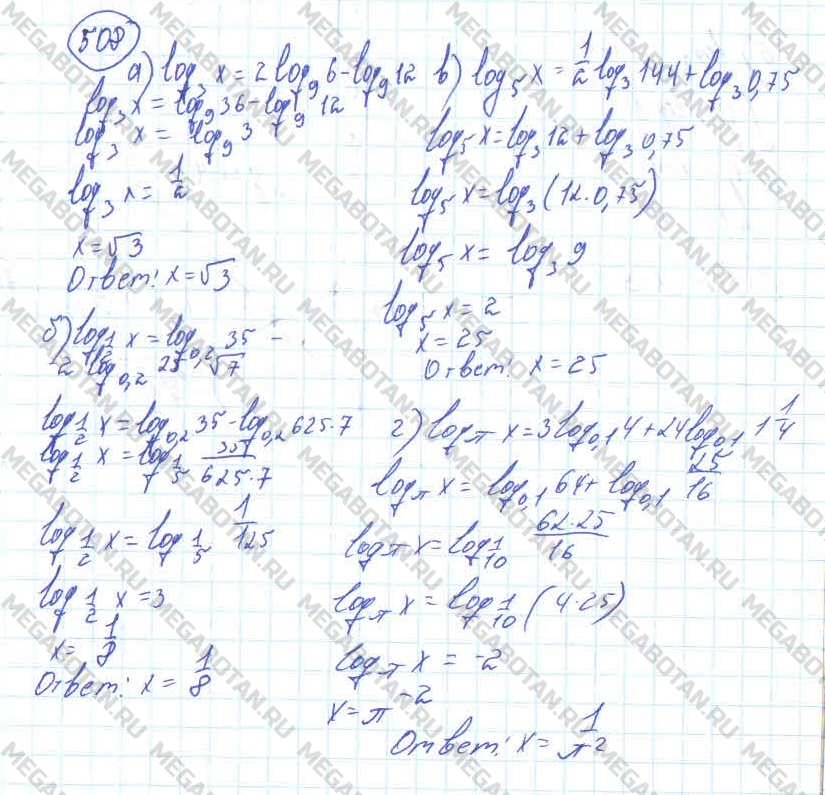 508
а) log₃ x = 2 log₉ 6 - log₉ 12
log₃ x = log₉ 36 - log₉ 12
log₃ x = log₉ 3
log₃ x = 1/2
x = √3
Ответ: x = √3
б) log_{1/2} x = log_{0,2} 35 -
- 2 log_{0,2} 25√7
log_{1/2} x = log_{0,2} 35 - log_{0,2} 625·7
log_{1/2} x = log_{1/5} 35/(625·7)
log_{1/2} x = log_{1/5} 1/125
log_{1/2} x = 3
x = 1/8
Ответ: x = 1/8
в) log₅ x = 1/2 log₃ 144 + log₃ 0,75
log₅ x = log₃ 12 + log₃ 0,75
log₅ x = log₃ (12·0,75)
log₅ x = log₃ 9
log₅ x = 2
x = 25
Ответ: x = 25
г) log_π x = 3 log_{0,1} 4 + 24 log_{0,1} 1 1/4
log_π x = log_{0,1} 64 + log_{0,1} 25/16
log_π x = log_{1/10} (62·25)/16
log_π x = log_{1/10} (4·25)
log_π x = -2
x = π⁻²
Ответ: x = 1/π²
MEGABOTAN.RU